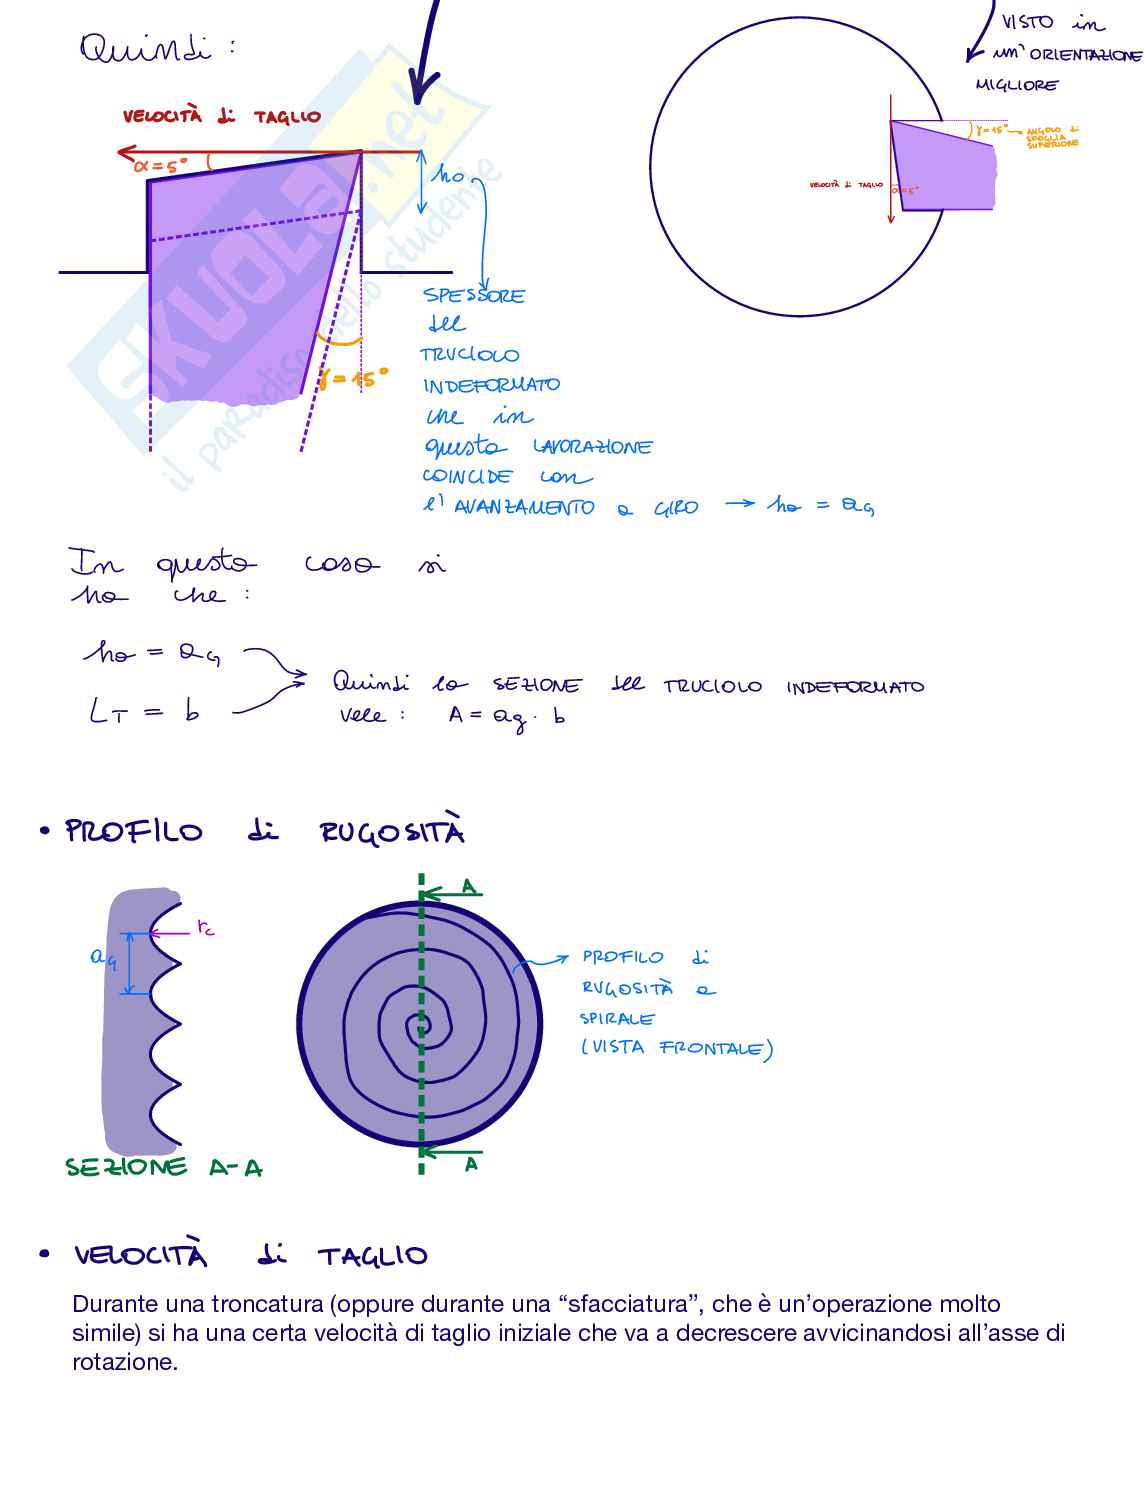 Quindi :
VISTO in
un' ORIENTAZIONE
MIGLIORE
VELOCITÀ di TAGLIO
α = 5°
ho
γ = 15° → ANGOLO di
SPOGLIA
SUPERIORE
VELOCITÀ di TAGLIO
α = 5°
SKUOLA.net
il paradiso dello studente
γ = 15°
SPESSORE
del
TRUCIOLO
INDEFORMATO
che in
questa LAVORAZIONE
COINCIDE con
l' AVANZAMENTO a GIRO → ho = aG
In questo caso si
ha che :
ho = aG
LT = b
Quindi la SEZIONE del TRUCIOLO INDEFORMATO
vale : A = ag · b
• PROFILO di RUGOSITÀ
A
rc
aG
PROFILO di
RUGOSITÀ a
SPIRALE
(VISTA FRONTALE)
A
SEZIONE A-A
• VELOCITÀ di TAGLIO
Durante una troncatura (oppure durante una “sfacciatura”, che è un’operazione molto
simile) si ha una certa velocità di taglio iniziale che va a decrescere avvicinandosi all’asse di
rotazione.